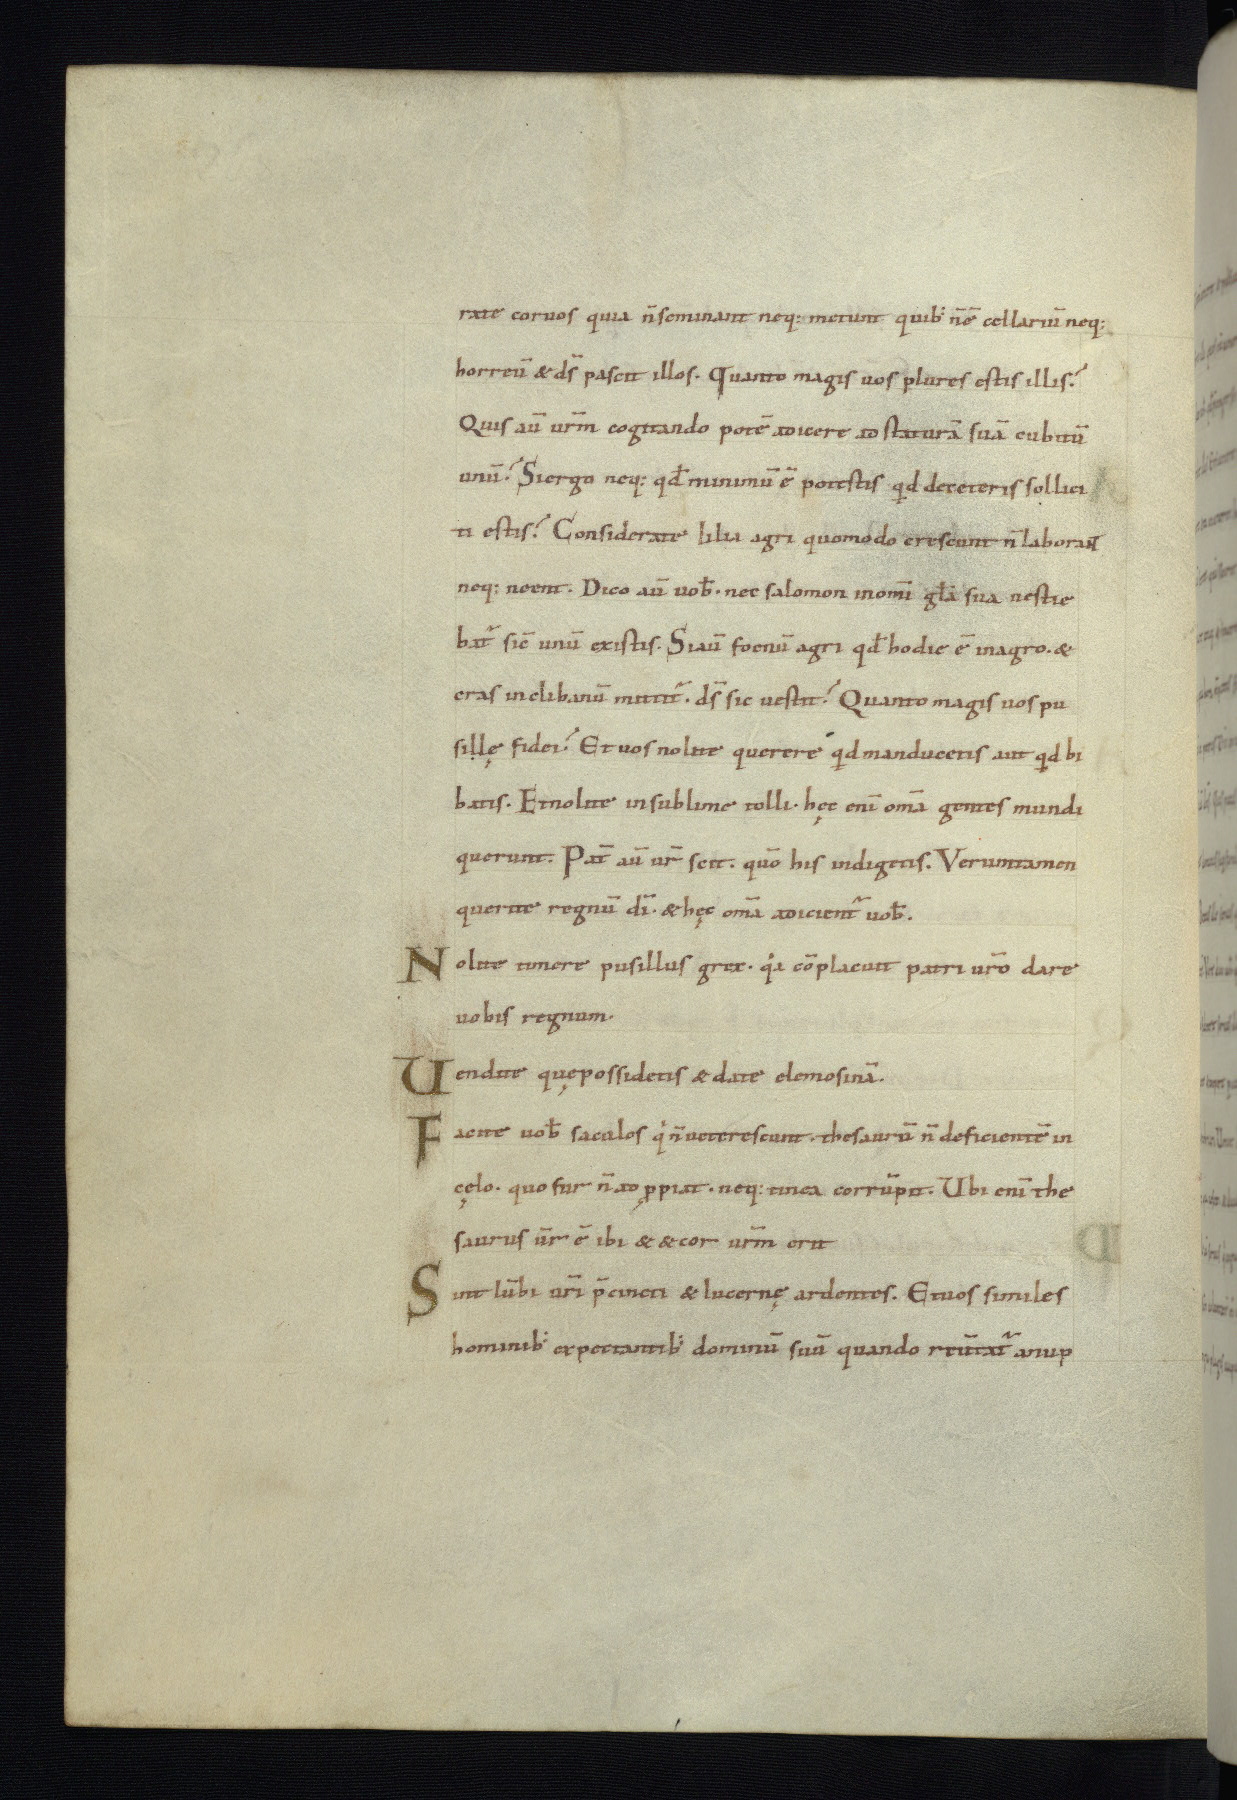 rate coruos quia n̄ seminant neq: metunt quib; n̄ ē cellariū neq:
horreū & d̄s pascit illos. Quanto magis uos plures estis illis?
Quis aū ur̄m cogitando potē adicere ad staturā suā cubitū
unū? Si ergo neq: qđ minimū ē potestis qd de ceteris sollici
ti estis? Considerate lilia agri quomodo crescunt n̄ laborant
neq: nent. Dico aū uob̄. nec salomon in om̄i gl̄a sua uestie
bat̄ sic̄ unū ex istis. Si aū foenū agri qđ hodie ē in agro. &
cras in clibanū mittit̄. d̄s sic uestit? Quanto magis uos pu
sillę fidei? Et uos nolite querere qd manducetis aut qd bi
batis. Et nolite in sublime tolli. hęc enī om̄a gentes mundi
querunt. Pat̄ aū ur̄ scit. quō his indigetis. Veruntamen
querite regnū dī. & hęc om̄a adicient̄ uob̄.
Nolite timere pusillus grex. qa cōplacuit patri ur̄o dare
uobis regnum.
Uendite quę possidetis & date elemosinā.
Facite uob̄ saculos q n̄ ueterescunt. thesaurū n̄ deficientē in
cęlo. quo fur n̄ adp̱piat. neq: tinea corrūpit. Ubi enī the
saurus ūr ē ibi & & cor ur̄m erit
Sint lūbi ur̄i p̄cincti & lucernę ardentes. Et uos similes
hominib; expectantib; dominū suū quando reūtat̄ a nup